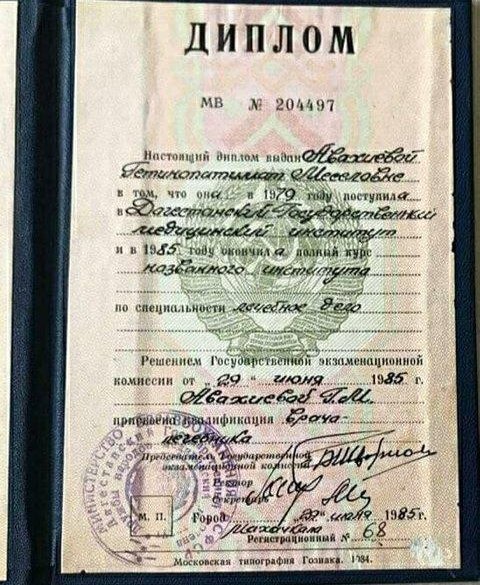 ДИПЛОМ
МВ № 204497
Настоящий диплом выдан Авахиевой
Гетинопатимат Меселовне
в том, что она в 1979 году поступила
в Дагестанский Государственный
медицинский институт
и в 1985 году окончила полный курс
названного института
по специальности лечебное дело
Решением Государственной экзаменационной
комиссии от „29" июня 1985 г.
Авахиевой Г.М.
присвоена квалификация врача
лечебника
Председатель Государственной
экзаменационной комиссии
Ректор
Секретарь
М. П.
Город Махачкала „29" июня 1985 г.
Регистрационный № 68
Московская типография Гознака. 1984.
МИНИСТЕРСТВО
Дагестанский